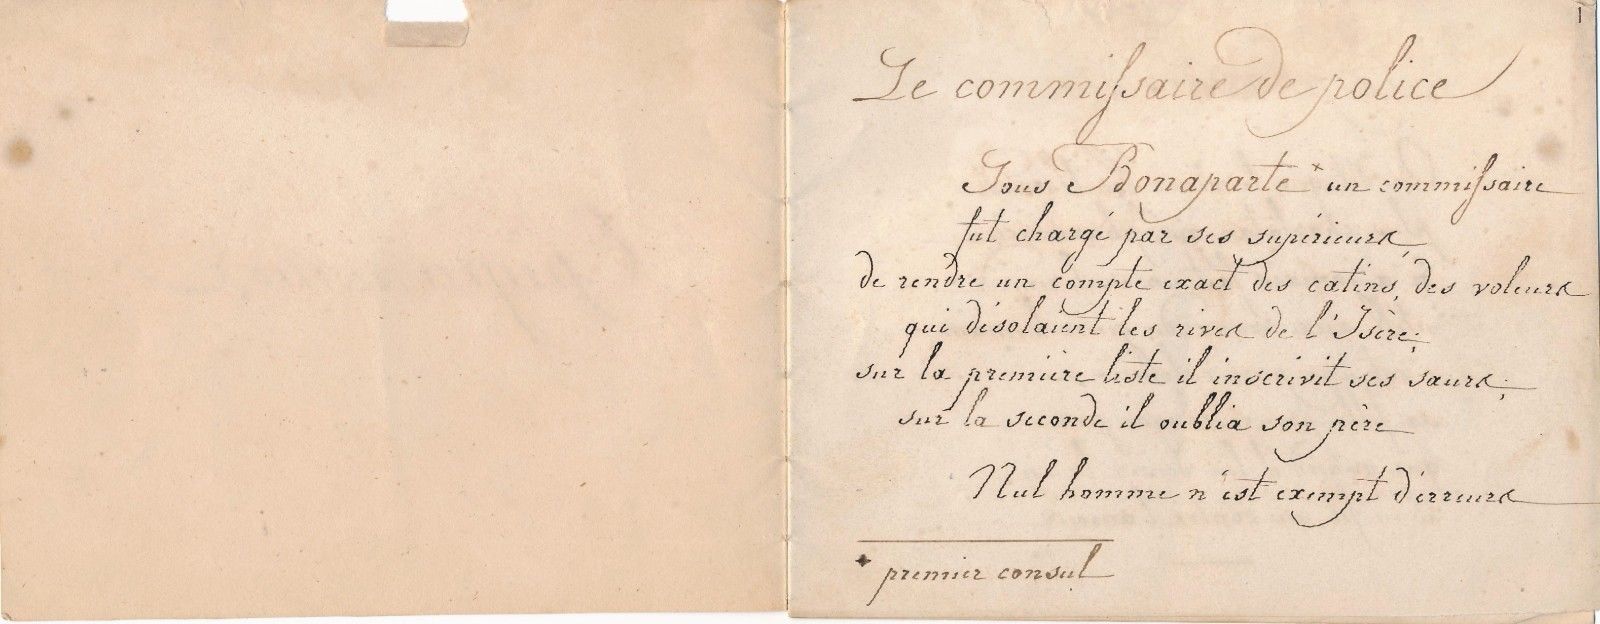 1
Le commissaire de police
Sous Bonaparte * un commissaire
fut chargé par ses supérieurs
de rendre un compte exact des catins, des voleurs
qui désolaient les rives de l'Isère;
sur la première liste il inscrivit ses sœurs;
sur la seconde il oublia son père
Nul homme n'est exempt d'erreurs
* premier consul